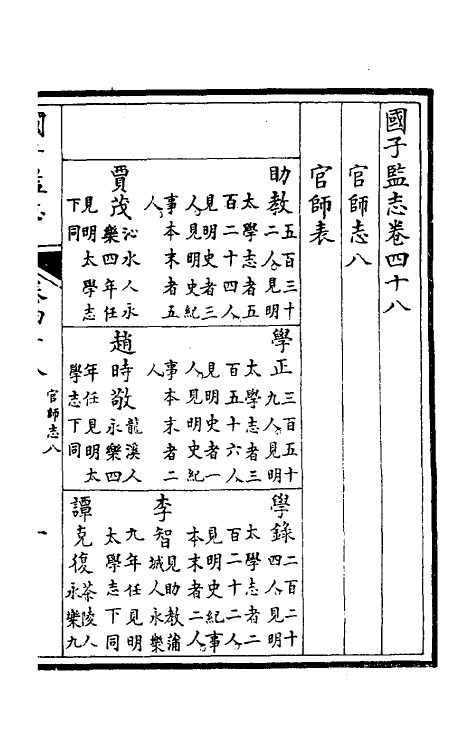 國子監志卷四十八
官師志八
官師表
助教
五百三十
二人見明
太學志者五
百二十四人
見明史者三
人見明史紀
事本末者五
人
賈茂
沁水人永
樂四年任
見明太學志
下同
學正
三百五十
九人見明
太學志者三
百五十六人
見明史者一
人見明史紀
事本末者二
人
趙時敬
龍溪人
永樂四
年任見明太
學志下同
學錄
二百二十
四人見明
太學志者二
百二十二人
見明史紀事
本末者二人
李智
見助教蒲
城人永樂
九年任見明
太學志下同
譚克復
茶陵人
永樂九
國子監志
卷四十八
官師志八
一